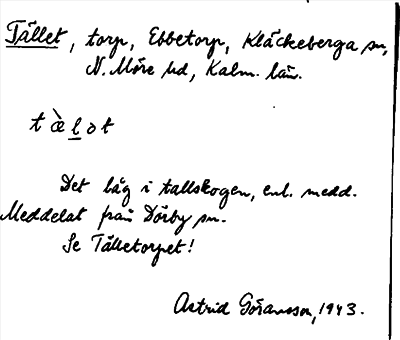 Tället, torp, Ebbetorp, Kläckeberga sn,
N. Möre hd, Kalm. län.
t æ̀ l ɔ t
Det låg i tallskogen, enl. medd.
Meddelat från Dörby sn.
Se Tälletorpet!
Astrid Göransson, 1943.